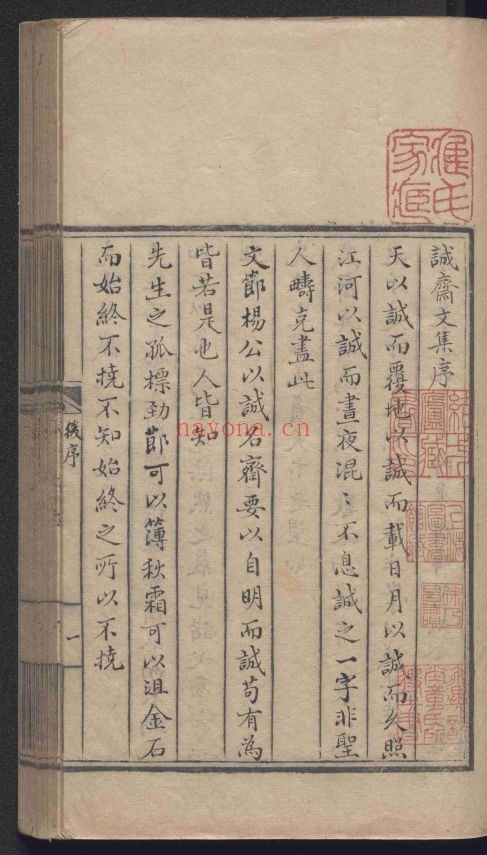 誠齋文集序
天以誠而覆地以誠而載日月以誠而久照
江河以誠而晝夜混〻不息誠之一字非聖
人疇克盡此
文節楊公以誠名齋要以自明而誠苟有為
皆若是也人皆知
先生之孤標劲節可以薄秋霜可以沮金石
而始終不撓不知始終之所以不撓
後序
一
nayona.cn